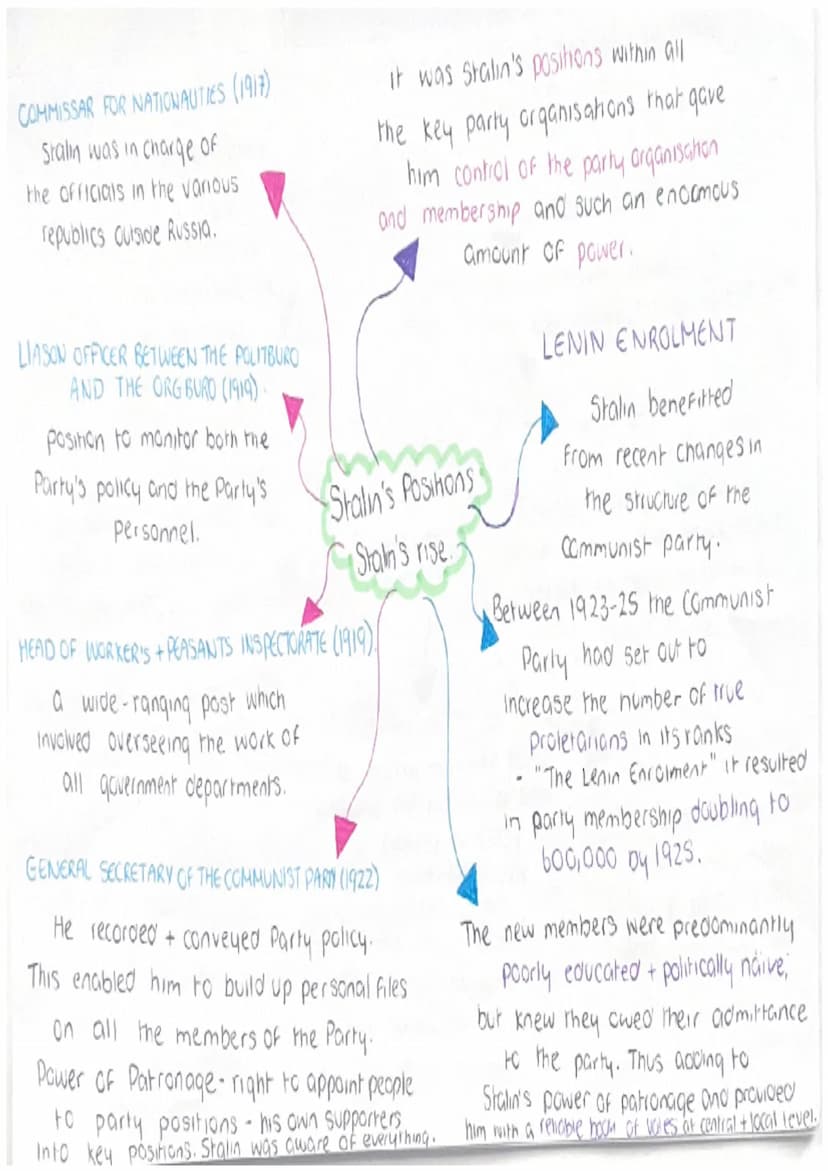 COMMISSAR FOR NATIONALITIES (1917)
Stalin was in charge of
the officials in the various
republics outside Russia.
It was Stalin's positions within all
the key party organisations that gave
him control of the party organisation
and membership and such an enormous
amount of power.
LIASON OFFICER BETWEEN THE POLITBURO
AND THE ORGBURO (1919).
position to monitor both the
Party's policy and the Party's
Personnel.
LENIN ENROLMENT
Stalin benefitted
from recent changes in
the structure of the
Communist party.
Stalin's Positions
Stalin's rise.
HEAD OF WORKER'S + PEASANTS INSPECTORATE (1919)
a wide-ranging post which
involved overseeing the work of
all government departments.
Between 1923-25 the Communist
Party had set out to
increase the number of true
proletarians in its ranks
- "The Lenin Enrolment" it resulted
in party membership doubling to
600,000 by 1925.
GENERAL SECRETARY OF THE COMMUNIST PARTY (1922)
He recorded + conveyed Party policy.
This enabled him to build up personal files
on all the members of the Party.
Power of Patronage - right to appoint people
to party positions - his own supporters
into key positions. Stalin was aware of everything.
The new members were predominantly
poorly educated + politically näive,
but knew they owed their admittance
to the party. Thus adding to
Stalin's power of patronage and provided
him with a reliable body of votes at central + local level.